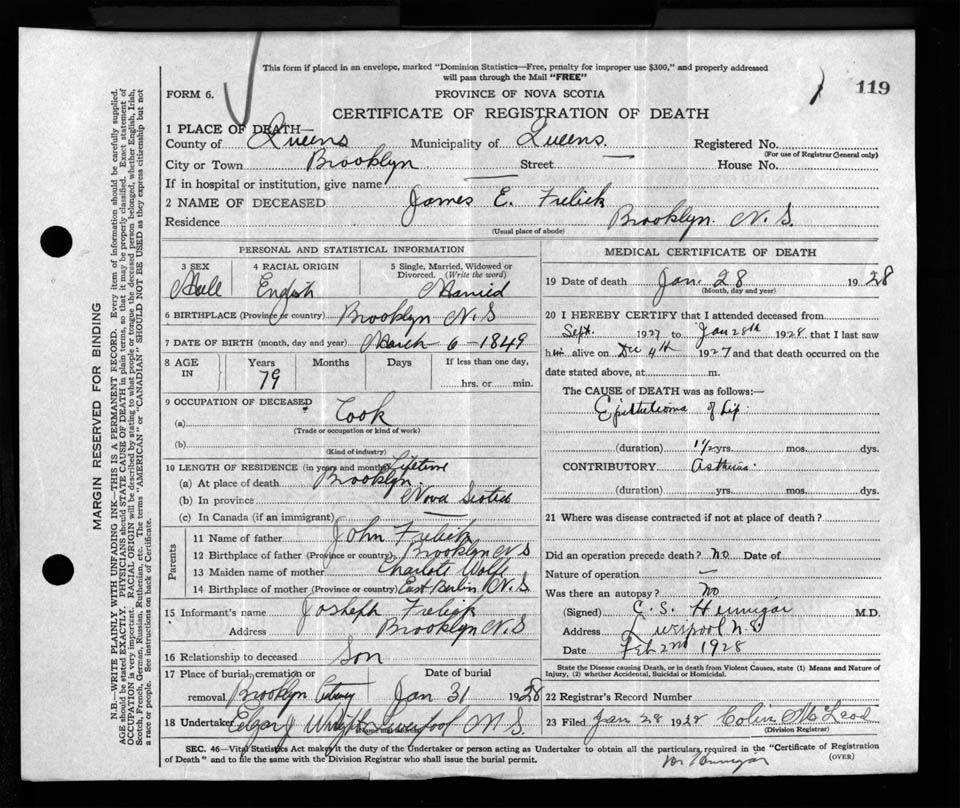 This form if placed in an envelope, marked "Dominion Statistics—Free, penalty for improper use $300," and properly addressed
will pass through the Mail "FREE"
FORM 6.
PROVINCE OF NOVA SCOTIA
119
CERTIFICATE OF REGISTRATION OF DEATH
1 PLACE OF DEATH—
County of Queens Municipality of Queens. Registered No.
(For use of Registrar General only)
City or Town Brooklyn Street — House No.
If in hospital or institution, give name —
2 NAME OF DECEASED James E. Frelick
Residence Brooklyn. N. S.
(Usual place of abode)
PERSONAL AND STATISTICAL INFORMATION
3 SEX 4 RACIAL ORIGIN 5 Single, Married, Widowed or
Divorced. (Write the word)
Male English Married
6 BIRTHPLACE (Province or country) Brooklyn N. S
7 DATE OF BIRTH (month, day and year) March 6-1849
8 AGE Years Months Days If less than one day,
IN 79 hrs. or min.
9 OCCUPATION OF DECEASED
(a) Cook
(Trade or occupation or kind of work)
(b)
(Kind of industry)
10 LENGTH OF RESIDENCE (in years and months) Lifetime
(a) At place of death Brooklyn
(b) In province Nova Scotia
(c) In Canada (if an immigrant) —
Parents
11 Name of father John Frelick
12 Birthplace of father (Province or country) Brooklyn N S
13 Maiden name of mother Charlote Wolfe
14 Birthplace of mother (Province or country) East Berlin N. S.
15 Informant's name Josheph Frelick
Address Brooklyn N. S
16 Relationship to deceased Son
17 Place of burial, cremation or Date of burial
removal Brooklyn Jan 31 1928
18 Undertaker Edgar J Liverpool N. S.
MEDICAL CERTIFICATE OF DEATH
19 Date of death Jan. 28 1928
(Month, day and year)
20 I HEREBY CERTIFY that I attended deceased from
Sept. 1927 to Jan 28th 1928 that I last saw
him alive on Dec 4th 1927 and that death occurred on the
date stated above, at m.
The CAUSE OF DEATH was as follows:—
Epithelioma of Lip.
(duration) 1 1/2 yrs. mos. dys.
CONTRIBUTORY
(duration) yrs. mos. dys.
21 Where was disease contracted if not at place of death?
Did an operation precede death? no Date of
Nature of operation —
Was there an autopsy? No
(Signed) C. S. Hennigar M.D.
Address Liverpool N. S
Date Feb 2nd 1928
State the Disease causing Death, or in death from Violent Causes, state (1) Means and Nature of
Injury, (2) whether Accidental, Suicidal or Homicidal.
22 Registrar's Record Number
23 Filed Jan 28 1928 Colin McLeod
(Division Registrar)
SEC. 46—Vital Statistics Act makes it the duty of the Undertaker or person acting as Undertaker to obtain all the particulars required in the "Certificate of Registration
of Death" and to file the same with the Division Registrar who shall issue the burial permit.
(OVER)
MARGIN RESERVED FOR BINDING
N.B.—WRITE PLAINLY WITH UNFADING INK—THIS IS A PERMANENT RECORD. Every item of information should be carefully supplied.
AGE should be stated EXACTLY. PHYSICIANS should STATE CAUSE OF DEATH in plain terms, so that it may be properly classified. Exact statement of
OCCUPATION is very important. RACIAL ORIGIN will be described by stating to what people or tongue the deceased person belonged, whether English, Irish,
Scotch, French, German, Russian, Ruthenian, etc. The terms "AMERICAN" or "CANADIAN" SHOULD NOT BE USED as they express citizenship but not
a race or people. See instructions on back of Certificate.